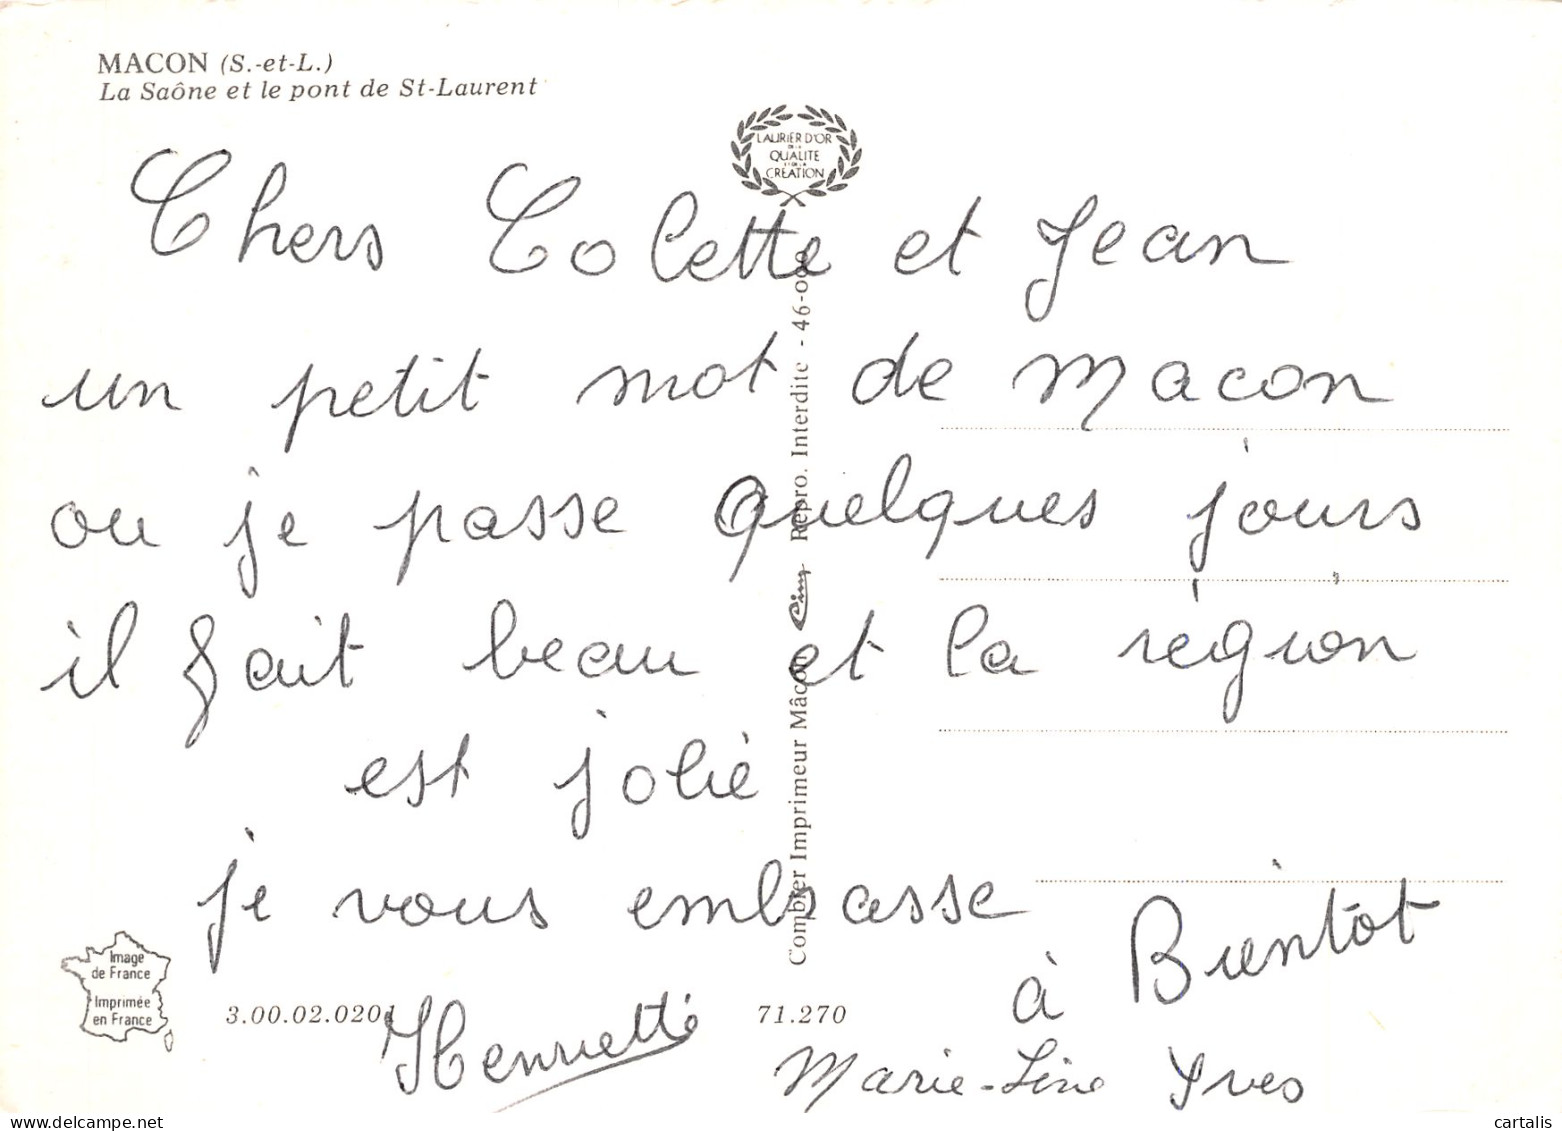 MACON (S.-et-L.)
La Saône et le pont de St-Laurent
LAURIER D'OR
DE LA
QUALITE
ET DE LA
CREATION
Chers Colette et Jean
un petit mot de Macon
ou je passe quelques jours
il fait beau et la région
est jolie
je vous embrasse
à Bientôt
Henriette
Marie-Line Yves
Combier Imprimeur Mâcon Cim Repro. Interdite - 46-000
Image
de France
Imprimée
en France
3.00.02.0201
71.270
cartalis